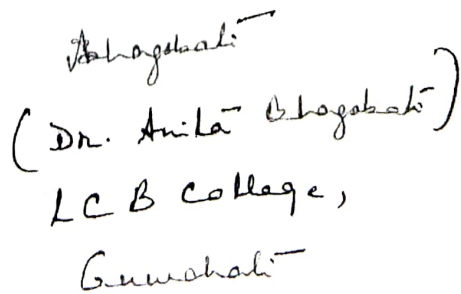 ABhagabati
(Dr. Anita Bhagabati)
LCB College,
Guwahati